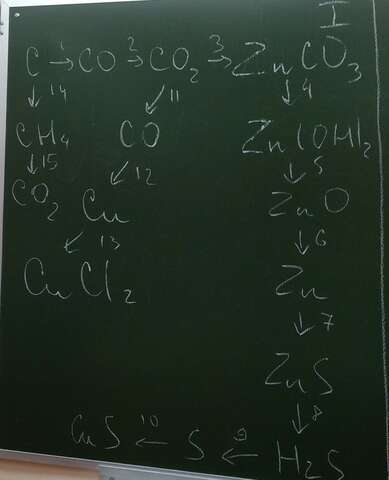 I
C →1 CO →2 CO₂ →3 ZnCO₃
↓ 14 ↙ 11 ↓ 4
CH₄ CO Zn(OH)₂
↓ 15 ↙ 12 ↓ 5
CO₂ Cu ZnO
↙ 13 ↓ 6
CuCl₂ Zn
↓ 7
ZnS
↓ 8
CuS ←10 S ←9 H₂S